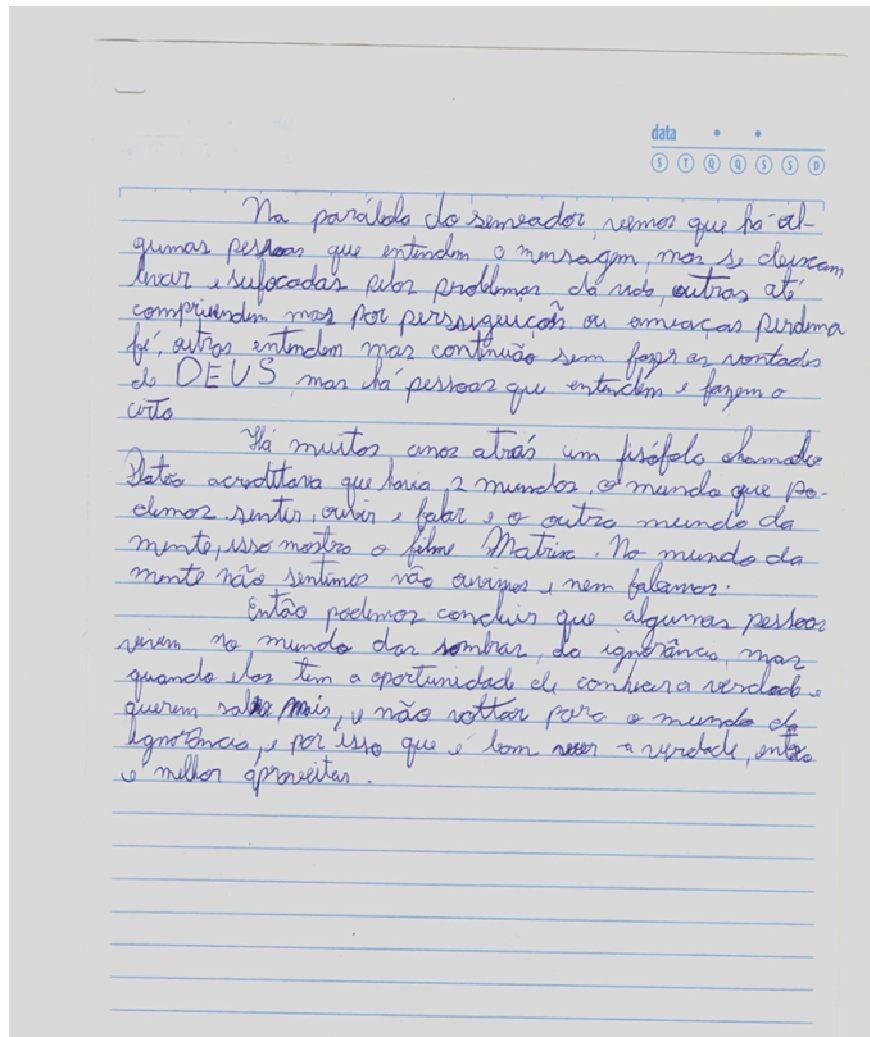 data
S T Q Q S S D
Na parábola do semeador, vemos que há al-
gumas pessoas que entendem a mensagem, mas se deixam
levar e sufocadas pelos problemas da vida, outras até
compriendem mas por persseguiçoẽs ou ameaças perdem a
fé, outros entendem mas continuão sem fazer as vontades
de DEUS mas há pessoas que entendem e fazem o
certo
Há muitos anos atrás um fisófolo chamado
Platão acreditava que havia 2 mundos, o mundo que po-
demos sentir, ouvir e falar e o outro mundo da
mente, isso mostra o filme Matrix. No mundo da
mente não sentimos não ouvimos e nem falamos.
Então podemos concluir que algumas pessoas
vivem no mundo das sombras, da ignorância, mas
quando elas tem a oportunidade de conhecer a verdade e
querem saber mais, e não voltar para o mundo da
ignorância, e por isso que é bom a verdade, então
é melhor aproveitar.